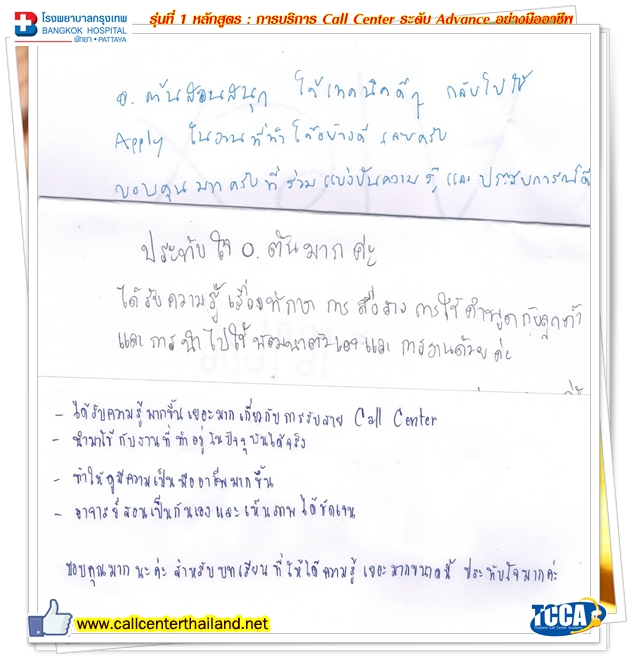 โรงพยาบาลกรุงเทพ
BANGKOK HOSPITAL
พัทยา • PATTAYA
รุ่นที่ 1 หลักสูตร : การบริการ Call Center ระดับ Advance อย่างมืออาชีพ
อ. ตันสอนสนุก ได้เทคนิคดีๆ กลับไปใช้
Apply ในงานที่ทำ ได้อย่างดี เลยครับ
ขอบคุณ มากครับที่ ร่วม แบ่งปันความรู้ และ ประสบการณ์ดี
ประทับใจ อ. ตันมากค่ะ
ได้รับความรู้ เรื่องทักษะ การสื่อสาร การใช้คำพูดกับลูกค้า
และ การนำไปใช้ พัฒนาตัวเองและ การงานด้วยค่ะ
- ได้รับความรู้มากขึ้นเยอะมาก เกี่ยวกับการรับสาย Call Center
- นำมาใช้กับงานที่ทำอยู่ในปัจจุบันได้จริง
- ทำให้ดูมีความเป็นมืออาชีพมากขึ้น
- อาจารย์สอนเป็นกันเองและเห็นภาพได้ชัดเจน
ขอบคุณมากนะค่ะ สำหรับบทเรียนที่ให้ได้ความรู้เยอะมากขนาดนี้ ประทับใจมากค่ะ
www.callcenterthailand.net
TCCA